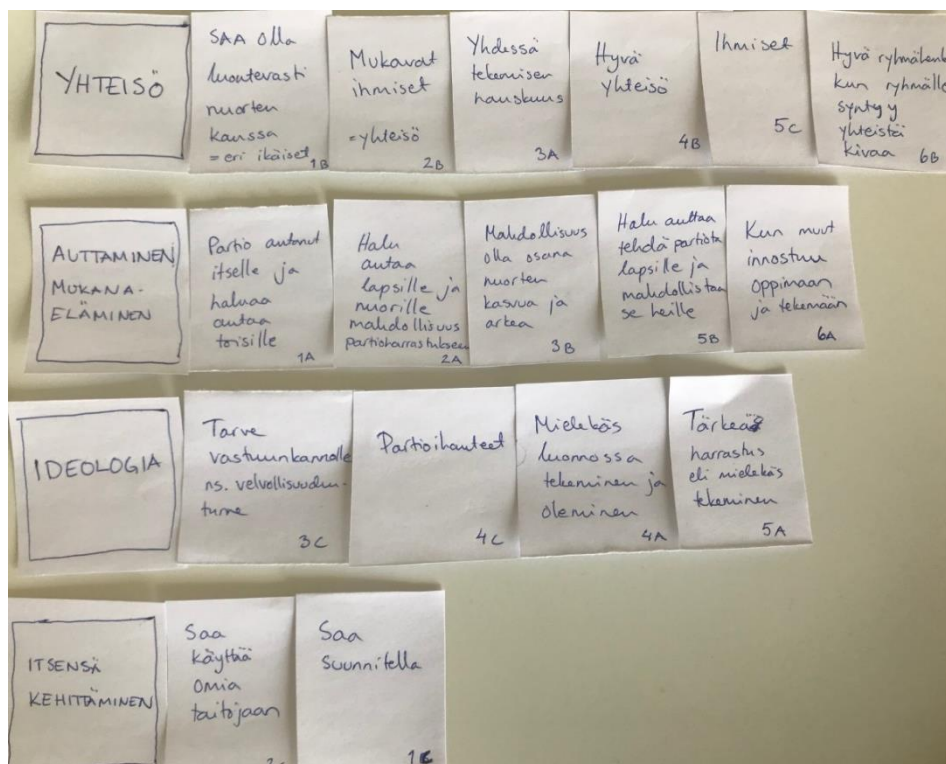 YHTEISÖ
SAA olla
luontevasti
nuorten
kanssa
= eri ikäiset
1B
Mukavat
ihmiset
=yhteisö
2B
Yhdessä
tekemisen
hauskuus
3A
Hyvä
yhteisö
4B
Ihmiset
5C
Hyvä
kun ryhmälle
syntyy
yhteistä
kivaa
6B
AUTTAMINEN/
MUKANA-
ELÄMINEN
Partio antanut
itselle ja
haluaa
antaa
toisille
1A
Halu
antaa
lapsille ja
nuorille
mahdollisuus
partioharrastukseen
2A
Mahdollisuus
olla osana
nuorten
kasvua ja
arkea
3B
Halu auttaa
tehdä partiota
lapsille ja
mahdollistaa
se heille
5B
Kun muut
innostuu
oppimaan
ja tekemään
6A
IDEOLOGIA
Tarve
vastuunkannolle
ns. velvollisuudun-
tunne
3C
Partioihanteet
4C
Mielekäs
luonnossa
tekeminen ja
oleminen
4A
Tärkeä
harrastus
eli mielekäs
tekeminen
5A
ITSENSÄ
KEHITTÄMINEN
Saa
käyttää
omia
taitojaan
Saa
suunnitella
1C